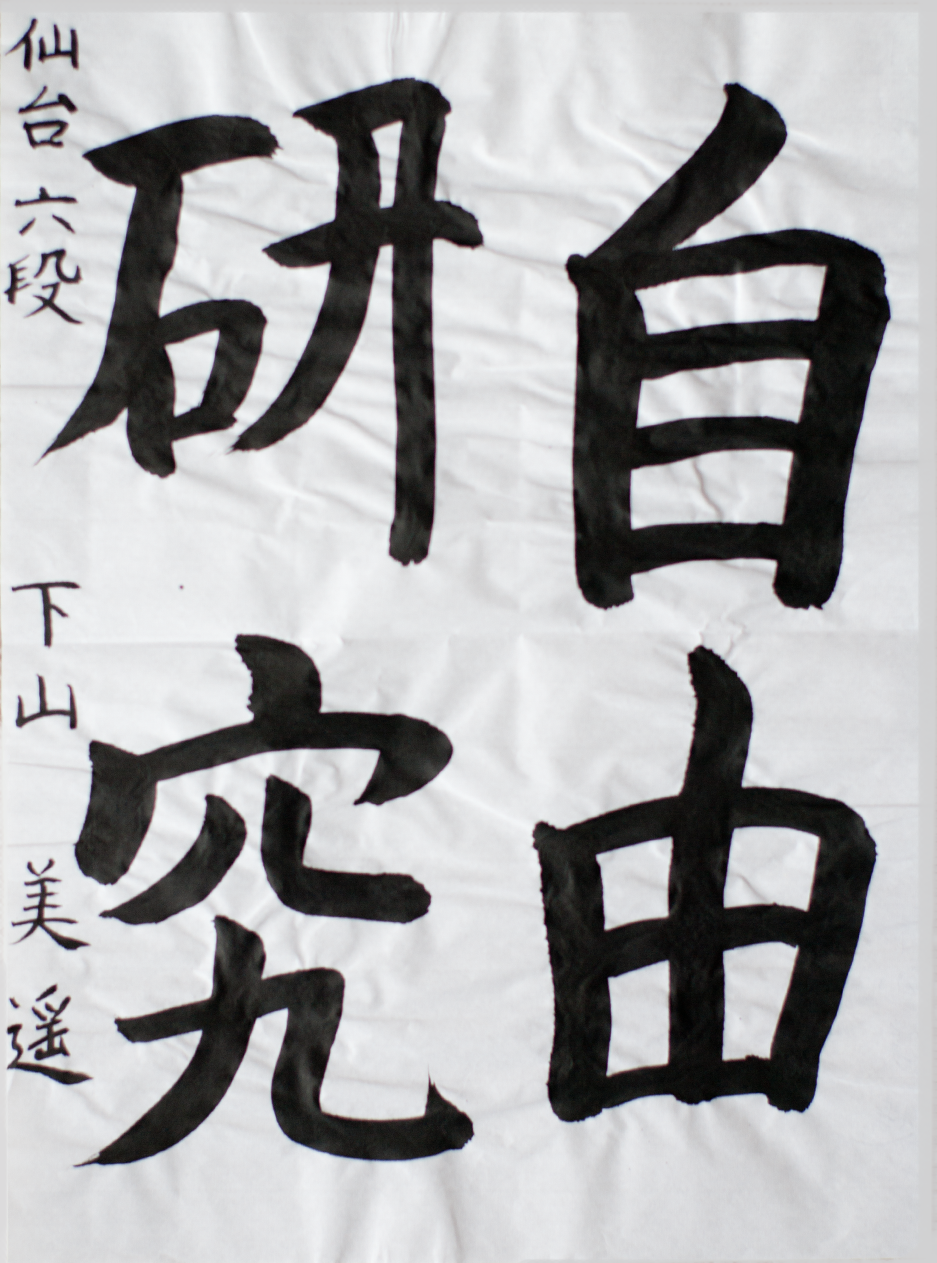 自由
研究
仙台 六段 下山 美遥